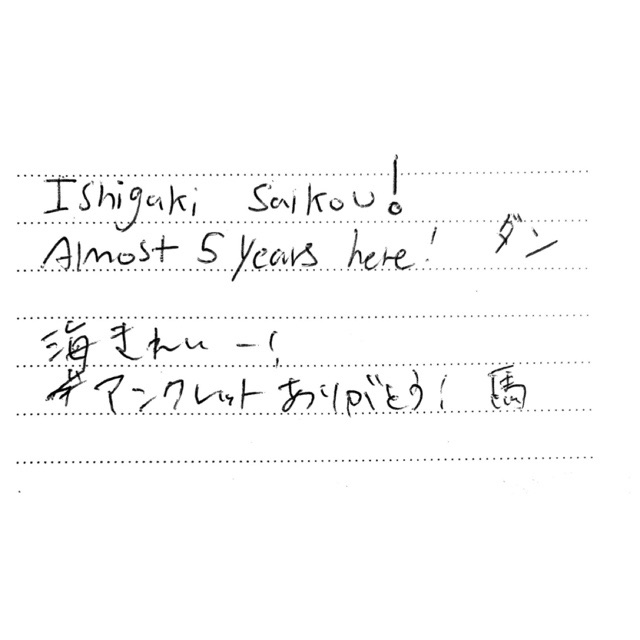 Ishigaki Saikou!
Almost 5 years here! ダン
海きれいー!
#アンクレットありがとう! 馬